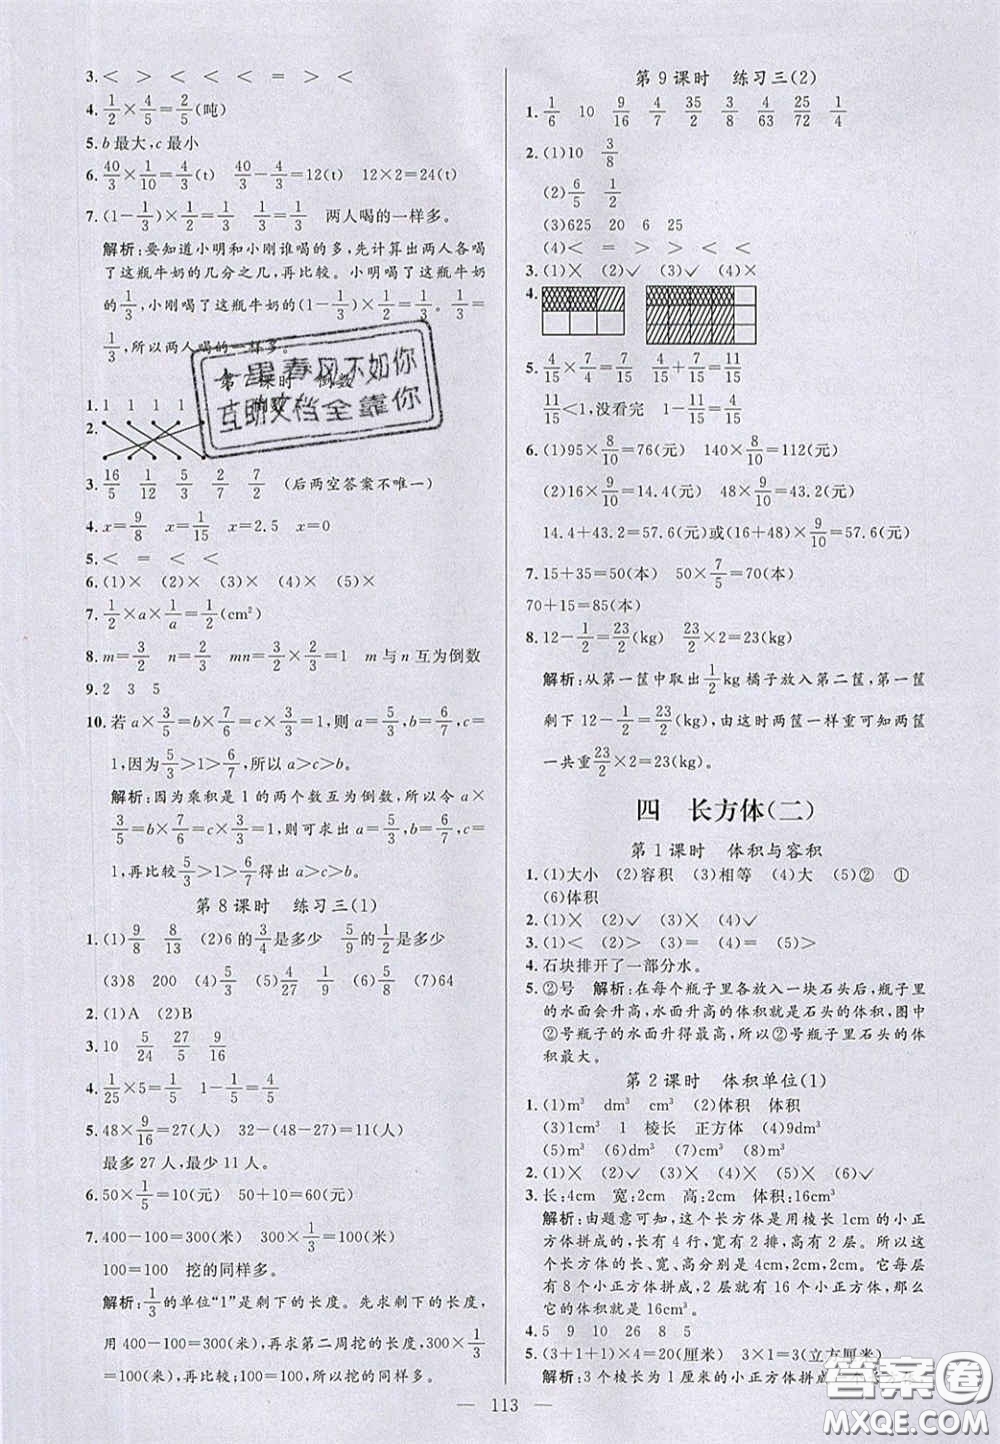 3. < > < < = > <
4. 1/2×4/5=2/5(吨)
5. b最大,c最小
6. 40/3×1/10=4/3(t) 40/3-4/3=12(t) 12×2=24(t)
7. (1-1/3)×1/3=1/3 1/3=1/3 两人喝的一样多。
解析:要知道小明和小刚谁喝的多,先计算出两人各喝
了这瓶牛奶的几分之几,再比较。小明喝了这瓶牛奶
的1/3,小刚喝了这瓶牛奶的(1-1/3)×1/2=1/3,1/3=
1/3,所以两人喝的一样多。
课时 倒数
1. 1 1 1 1
2.
3. 16/5 1/12 5/3 2/7 7/2 (后两空答案不唯一)
4. x=9/8 x=1/15 x=2.5 x=0
5. < = < <
6. (1)× (2)× (3)× (4)× (5)×
7. 1/2×a×1/a=1/2(cm²)
8. m=3/2 n=2/3 mn=3/2×2/3=1 m与n互为倒数
9. 2 3 5
10. 若a×3/5=b×7/6=c×3/3=1,则a=5/3,b=6/7,c=
1,因为5/3>1>6/7,所以a>c>b。
解析:因为乘积是1的两个数互为倒数,所以令a×
3/5=b×7/6=c×3/3=1,则可求出a=5/3,b=6/7,c=
1,再比较5/3>1>6/7,所以a>c>b。
第8课时 练习三(1)
1. (1)9/8 8/13 (2)6的3/4是多少 5/9的1/2是多少
(3)8 200 (4)5/3 (5)4/27 5/9 (6)1/5 (7)64
2. (1)A (2)B
3. 10 5/24 27/5 9/16
4. 1/25×5=1/5 1-1/5=4/5
5. 48×9/16=27(人) 32-(48-27)=11(人)
最多27人,最少11人。
6. 50×1/5=10(元) 50+10=60(元)
7. 400-100=300(米) 300×1/3=100(米)
100=100 挖的同样多。
解析:1/3的单位“1”是剩下的长度。先求剩下的长度,
用400-100=300(米),再求第二周挖的长度,300×1/3
=100(米),再进行比较,100=100,挖的同样多。
第9课时 练习三(2)
1. 1/6 10 9/16 4/7 35/2 3/8 4/63 25/72 3/4
2. (1)10 3/8
(2)6/5 1/2
(3)625 20 6 25
(4)< = > < >
3. (1)× (2)✓ (3)✓ (4)×
4.
5. 4/15×7/4=7/15 4/15+7/15=11/15
11/15<1,没看完 1-11/15=4/15
6. (1)95×8/10=76(元) 140×8/10=112(元)
(2)16×9/10=14.4(元) 48×9/10=43.2(元)
14.4+43.2=57.6(元)或(16+48)×9/10=57.6(元)
7. 15+35=50(本) 50×7/5=70(本)
70+15=85(本)
8. 12-1/2=23/2(kg) 23/2×2=23(kg)
解析:从第一筐中取出1/2kg橘子放入第二筐,第一筐
剩下12-1/2=23/2(kg),由这时两筐一样重可知两筐
一共重23/2×2=23(kg)
四 长方体(二)
第1课时 体积与容积
1. (1)大小 (2)容积 (3)相等 (4)大 (5)② ①
(6)体积
2. (1)× (2)✓ (3)× (4)✓
3. (1)< (2)> (3)= (4)= (5)>
4. 石块排开了一部分水。
5. ②号 解析:在每个瓶子里各放入一块石头后,瓶子里
的水面会升高,水面升高的体积就是石头的体积,图中
②号瓶子的水面升得最高,所以②号瓶子里石头的体
积最大。
第2课时 体积单位(1)
1. (1)m³ dm³ cm³ (2)体积 体积
(3)1cm³ 1 棱长 正方体 (4)9dm³
(5)m³ (6)dm³ (7)cm³ (8)m³
2. (1)× (2)✓ (3)× (4)✓ (5)× (6)✓
3. 长:4cm 宽:2cm 高:2cm 体积:16cm³
解析:由题意可知,这个长方体是用棱长1cm的小正
方体拼成的,长有4行,宽有2排,高有2层。所以这
个长方体的长、宽、高分别是4cm,2cm,2cm。它每层
有8个小正方体拼成,2层就有16个小正方体,那么
它的体积就是16cm³。
4. 5 9 10 26 8 5
5. (3+1+1)×4=20(厘米) 3×1=3(立方厘米)
解析:3个棱长为1厘米的小正方体拼成
113
星春风不如你
互助文档全靠你
答案圈
MXQE.COM